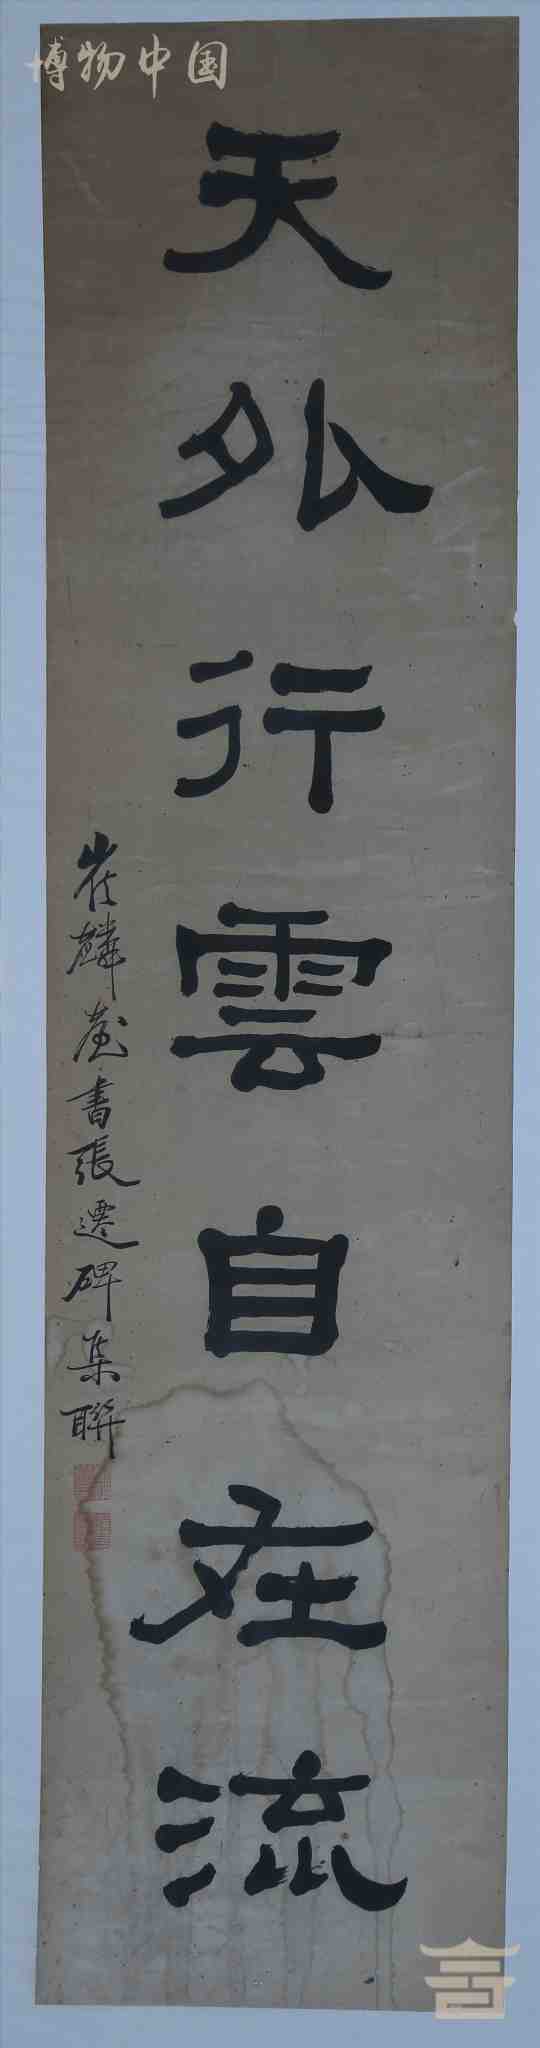 博物中国
天外行雲自在流
崔麟臺書張遷碑集聯